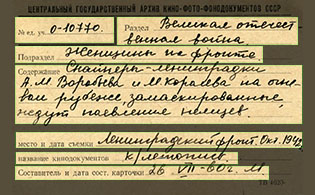 ЦЕНТРАЛЬНЫЙ ГОСУДАРСТВЕННЫЙ АРХИВ КИНО-ФОТО-ФОНОДОКУМЕНТОВ СССР
№ ед. уч. 0-10770. Раздел Великая отечест-
венная война.
Подраздел Женщины на фронте.
Содержание Снайперы-ленинградки
А.М. Воробьева и М Королева на огне-
вом рубеже, замаскированные
ждут появление немцев.
место и дата съемки Ленинградский фронт. Окт. 1942
название кинодокументов к/летопись.
Составитель и дата сост. карточки 26 VII-60г.